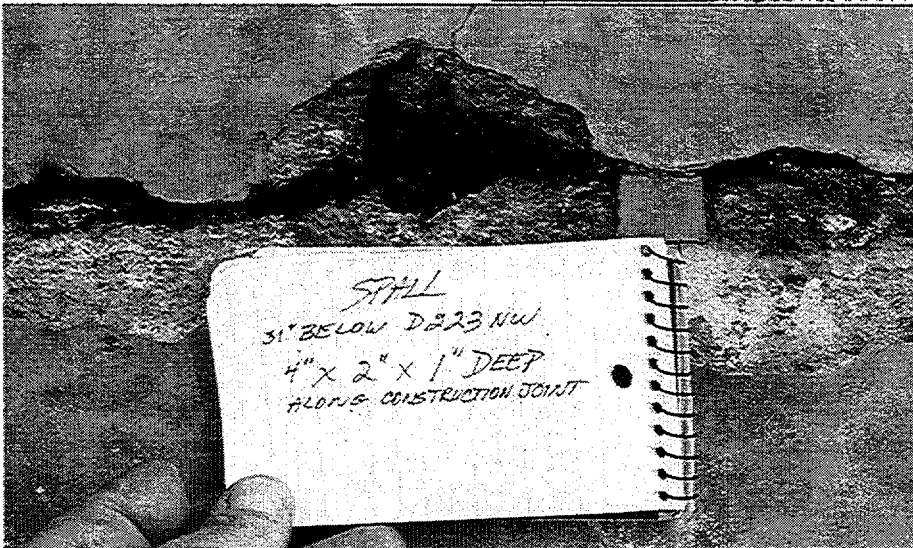 SPALL
31" BELOW D223 NW
4" X 2" X 1" DEEP
ALONG CONSTRUCTION JOINT